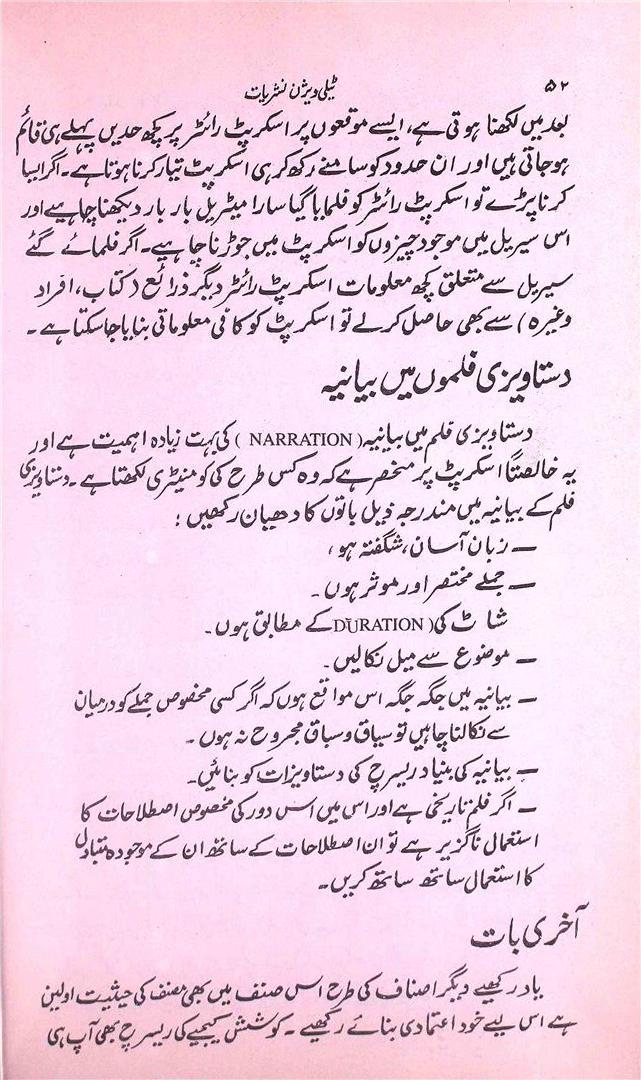 ۵۲
ٹیلی ویژن نشریات
بعد میں لکھنا ہوتی ہے، ایسے موقعوں پر اسکرپٹ رائٹر پر کچھ حدیں پہلے ہی قائم
ہو جاتی ہیں اور ان حدود کو سامنے رکھ کر ہی اسکرپٹ تیار کرنا ہوتا ہے۔ اگر ایسا
کرنا پڑے تو اسکرپٹ رائٹر کو فلمایا گیا سارا میٹریل بار بار دیکھنا چاہیے اور
اس سیریل میں موجود چیزوں کو اسکرپٹ میں جوڑنا چاہیے۔ اگر فلمائے گئے
سیریل سے متعلق کچھ معلومات اسکرپٹ رائٹر دیگر ذرائع (کتاب، افراد
وغیرہ) سے بھی حاصل کر لے تو اسکرپٹ کو کافی معلوماتی بنایا جا سکتا ہے۔
دستاویزی فلموں میں بیانیہ
دستاویزی فلم میں بیانیہ (NARRATION) کی بہت زیادہ اہمیت ہے اور
یہ خالصتاً اسکرپٹ پر منحصر ہے کہ وہ کس طرح کی کومنیٹری لکھتا ہے۔ دستاویزی
فلم کے بیانیہ میں مندرجہ ذیل باتوں کا دھیان رکھیں :
— زبان آسان، شگفتہ ہو،
— جملے مختصر اور موثر ہوں۔
شاٹ کی (DURATION کے مطابق ہوں۔
— موضوع سے میل نکالیں۔
— بیانیہ میں جگہ جگہ اس مواقع ہوں کہ اگر کسی مخصوص جملے کو درمیان
سے نکالنا چاہیں تو سیاق و سباق مجروح نہ ہوں۔
— بیانیہ کی بنیاد ریسرچ کی دستاویزات کو بنائیں۔
— اگر فلم تاریخی ہے اور اس میں اس دور کی مخصوص اصطلاحات کا
استعمال ناگزیر ہے تو ان اصطلاحات کے ساتھ ان کے موجودہ متبادل
کا استعمال ساتھ ساتھ کریں۔
آخری بات
یاد رکھیے دیگر اصناف کی طرح اس صنف میں بھی مصنف کی حیثیت اولین
ہے اس لیے خود اعتمادی بنائے رکھیے۔ کوشش کیجیے کی ریسرچ بھی آپ ہی